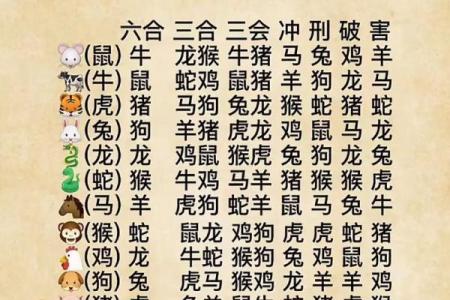 六合 三合 三会 冲 刑 破 害
(鼠) 牛 龙猴 牛猪 马 兔 鸡 羊
(牛) 鼠 蛇鸡 鼠猪 羊 狗 龙 马
(虎) 猪 马狗 兔龙 猴 蛇 猪 蛇
(兔) 狗 羊猪 虎龙 鸡 鼠 马 龙
(龙) 龙 鸡鼠 猴虎 兔 狗 龙 兔
(蛇) 猴 牛鸡 马羊 猪 猴 猴 虎
(马) 羊 虎狗 蛇羊 鼠 马 兔 牛
(猴) 蛇 鼠龙 鸡狗 虎 虎 蛇 猪
(鸡) 龙 牛蛇 猴狗 兔 鸡 鼠 狗
(狗) 兔 虎马 猴鸡 龙 羊 羊 鸡